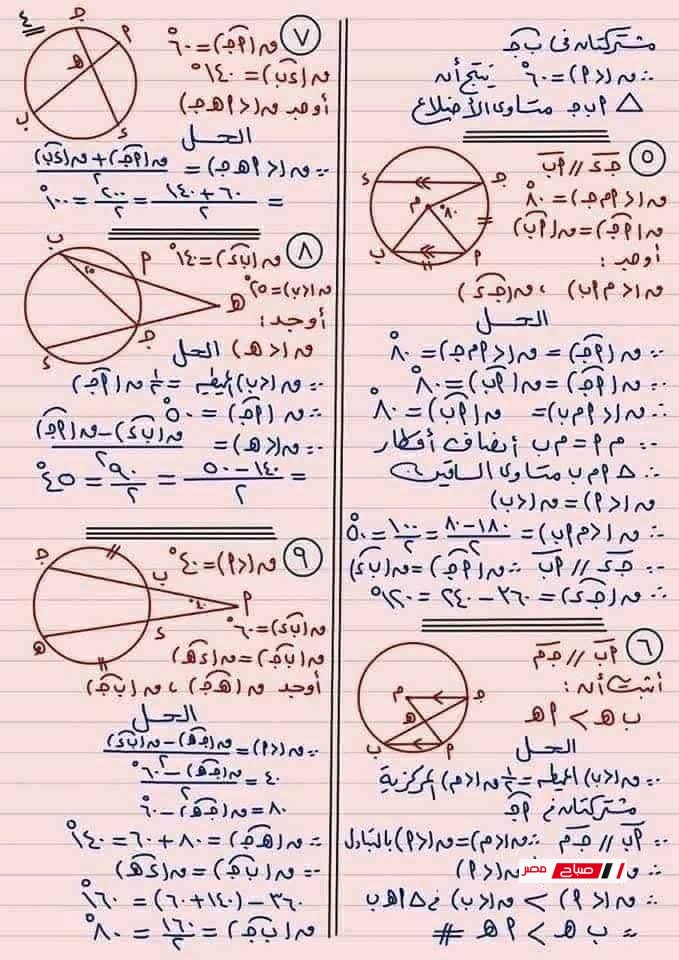 ٤
مشتركتان فى ب جـ
∴ ق(∠أ) = ٦٠° ينتج أنه
△ أ ب جـ متساوى الأضلاع
٥
جـ د // أ ب
ق(∠أ م جـ) = ٨٠°
ق(أ جـ) = ق(أ ب)
أوجد :
ق(∠م أ ب) ، ق(جـ د)
الحل
∵ ق(أ جـ) = ق(∠أ م جـ) = ٨٠°
∵ ق(أ جـ) = ق(أ ب) = ٨٠°
∴ ق(∠أ م ب) = ق(أ ب) = ٨٠°
∵ م أ = م ب أنصاف أقطار
∴ △ أ م ب متساوى الساقين
ق(∠أ) = ق(∠ب)
∴ ق(∠م أ ب) = (١٨٠ − ٨٠)/٢ = ١٠٠/٢ = ٥٠°
∵ جـ د // أ ب ∴ ق(أ جـ) = ق(ب د)
∴ ق(جـ د) = ٣٦٠ − ٢٤٠ = ١٢٠°
٦
أ ب // جـ م
أثبت أنه :
ب هـ > أ هـ
الحل
∵ ق(∠ب) المحيطية = ١/٢ ق(∠م) المركزية
مشتركتان فى أ جـ
∵ أ ب // جـ م ∴ ق(∠م) = ق(∠أ) بالتبادل
ق(∠أ)
∴ ق(∠أ) > ق(∠ب) فى △ أ هـ ب
∴ ب هـ > أ هـ #
٧
ق(أ جـ) = ٦٠°
ق(د ب) = ١٤٠°
أوجد ق(∠أ هـ جـ)
الحل
∵ ق(∠أ هـ جـ) = (ق(أ جـ) + ق(د ب))/٢
= (٦٠ + ١٤٠)/٢ = ٢٠٠/٢ = ١٠٠°
٨
ق(ب د) = ١٤٠°
ق(∠ب) = ٢٥°
أوجد :
ق(∠هـ) الحل
∵ ق(∠ب) المحيطية = ١/٢ ق(أ جـ)
∴ ق(أ جـ) = ٥٠°
∵ ق(∠هـ) = (ق(ب د) − ق(أ جـ))/٢
= (١٤٠ − ٥٠)/٢ = ٩٠/٢ = ٤٥°
٩
ق(∠أ) = ٤٠°
ق(ب د) = ٦٠°
ق(ب جـ) = ق(د هـ)
أوجد ق(هـ جـ) ، ق(ب جـ)
الحل
∵ ق(∠أ) = (ق(جـ هـ) − ق(ب د))/٢
٤٠ = (ق(جـ هـ) − ٦٠)/٢
٨٠ = ق(جـ هـ) − ٦٠
∴ ق(هـ جـ) = ٨٠ + ٦٠ = ١٤٠°
∵ ق(ب جـ) = ق(د هـ)
٣٦٠ − (١٤٠ + ٦٠) = ١٦٠°
ق(ب جـ) = ١٦٠/٢ = ٨٠°
صباح مصر